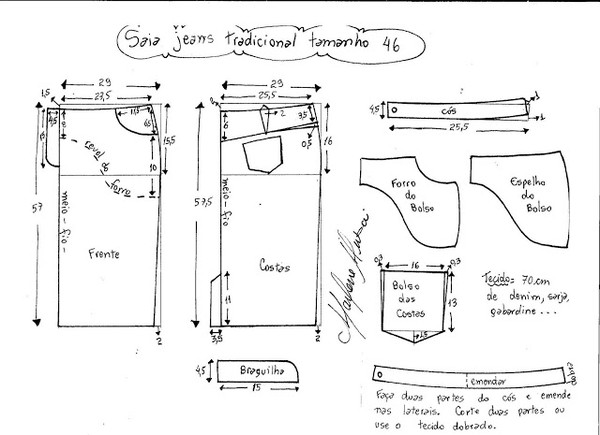 Saia jeans tradicional tamanho 46
29
23,5
1,5
4,5
11,5
6,5
15,5
10
revel de
forro
57
meio-fio-
Frente
2
29
25,5
2
3,5
0,5
6
16
57,5
meio-fio
Costas
11
3,5
2
Braguilha
4,5
15
Marlene Mukai
cós
4,5
25,5
1
1
Forro
do
Bolso
Espelho
do
Bolso
0,3
16
0,3
Bolso
das
Costas
13
1,5
Tecido= 70.cm
de denim, sarja,
gabardine...
emendar
Faça duas partes do cós e emende
nas laterais. Corte duas partes ou
use o tecido dobrado.